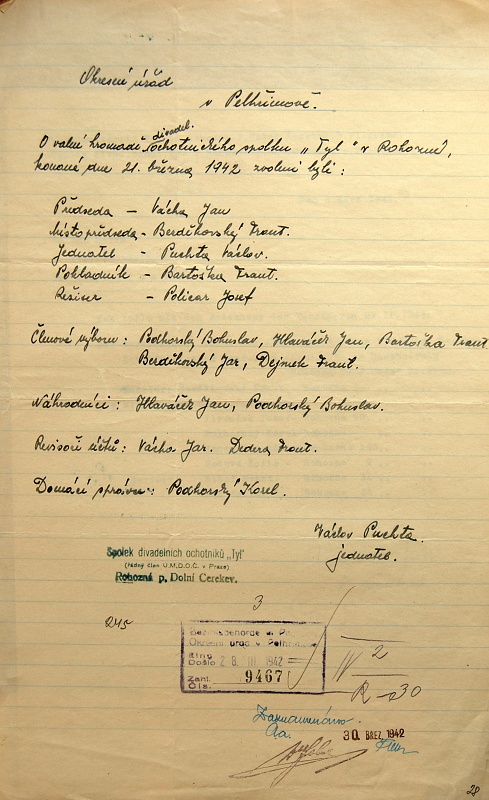 Okresní úřad
v Pelhřimově.
divadel.
O valné hromadě ochotnického spolku „Tyl" v Rohozné,
konané dne 21. března 1942 zvoleni byli:
Předseda – Vácha Jan
Místopředseda – Berdíkovský Frant.
Jednatel – Puchta Václav.
Pokladník – Bartoška Frant.
Režiser – Policar Josef
Členové výboru: Podhorský Bohuslav, Hlaváček Jan, Bartoška Frant.
Berdíkovský Jar, Dejmek Frant.
Náhradníci: Hlaváček Jan, Podhorský Bohuslav.
Revisoři účtů: Vácha Jar. Dedera Frant.
Domácí správce: Podhorský Karel.
Václav Puchta.
jednatel.
Spolek divadelních ochotníků „Tyl"
(řádný člen U.M.D.O.Č. v Praze)
Rohozná p. Dolní Cerekev.
3
245
Bezirksbehörde in
Okresní úřad v Pelhřimově
Eing.
Došlo 28. III. 1942
Zahl.
Čís. 9467
IV 2
R-30
Zaznamenáno
Aa.
30. BŘEZ. 1942
28